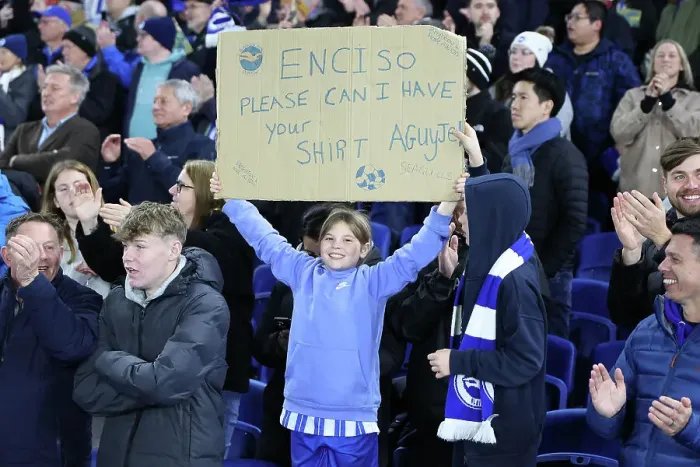 ENCISO
PLEASE CAN I HAVE
your
SHIRT AGUYJe!
SEAGULLS